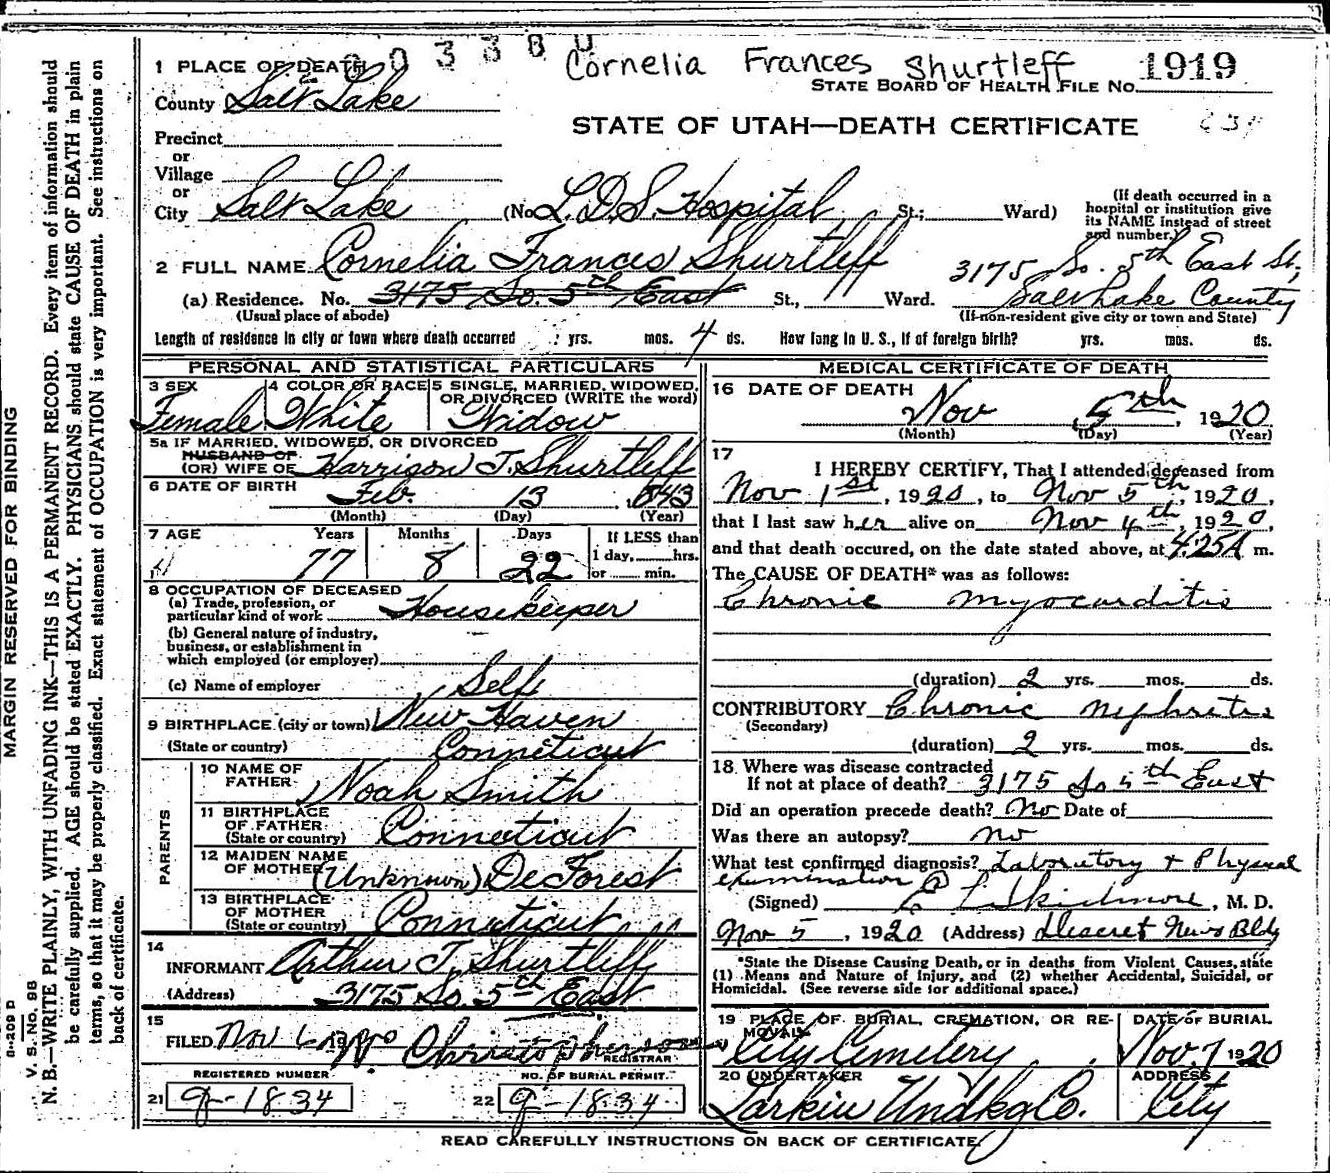 Cornelia Frances Shurtleff
STATE BOARD OF HEALTH FILE No. 1919
STATE OF UTAH—DEATH CERTIFICATE
1 PLACE OF DEATH
County Salt Lake
Precinct
or
Village
or
City Salt Lake (No. L.D.S. Hospital St.; Ward)
(If death occurred in a hospital or institution give its NAME instead of street and number.)
2 FULL NAME Cornelia Frances Shurtleff
(a) Residence. No. 3175 So. 5th East St., Ward. 3175 So. 5th East St, Salt Lake County
(Usual place of abode) (If non-resident give city or town and State)
Length of residence in city or town where death occurred yrs. mos. 4 ds. How long in U. S., if of foreign birth? yrs. mos. ds.
PERSONAL AND STATISTICAL PARTICULARS
3 SEX Female
4 COLOR OR RACE White
5 SINGLE, MARRIED, WIDOWED, OR DIVORCED (WRITE the word) Widow
5a IF MARRIED, WIDOWED, OR DIVORCED
HUSBAND OF
(OR) WIFE OF Harrison T. Shurtleff
6 DATE OF BIRTH Feb. 13 1843
(Month) (Day) (Year)
7 AGE Years Months Days If LESS than
77 8 22 1 day, hrs.
or min.
8 OCCUPATION OF DECEASED
(a) Trade, profession, or
particular kind of work Housekeeper
(b) General nature of industry,
business, or establishment in
which employed (or employer)
(c) Name of employer Self
9 BIRTHPLACE (city or town) New Haven
(State or country) Conneticut
PARENTS
10 NAME OF FATHER Noah Smith
11 BIRTHPLACE OF FATHER (State or country) Connecticut
12 MAIDEN NAME OF MOTHER (Unknown) DeForest
13 BIRTHPLACE OF MOTHER (State or country) Connecticut
14
INFORMANT Arthur T. Shurtleff
(Address) 3175 So. 5th East
15
FILED Nov 6 REGISTRAR
REGISTERED NUMBER NO. OF BURIAL PERMIT
21 9-1834 22 9-1834
MEDICAL CERTIFICATE OF DEATH
16 DATE OF DEATH
Nov 5th, 1920
(Month) (Day) (Year)
17
I HEREBY CERTIFY, That I attended deceased from
Nov 1st, 1920, to Nov 5th, 1920,
that I last saw her alive on Nov 4th, 1920,
and that death occured, on the date stated above, at 4:25A m.
The CAUSE OF DEATH* was as follows:
Chronic myocarditis
(duration) 2 yrs. mos. ds.
CONTRIBUTORY Chronic nephretis
(Secondary)
(duration) 2 yrs. mos. ds.
18 Where was disease contracted
If not at place of death? 3175 So 5th East
Did an operation precede death? No Date of
Was there an autopsy? no
What test confirmed diagnosis? Laboratory + Physical
examination
(Signed) Skidmore, M. D.
Nov 5, 1920 (Address) Deseret News Bldg
*State the Disease Causing Death, or in deaths from Violent Causes, state
(1) Means and Nature of Injury, and (2) whether Accidental, Suicidal, or
Homicidal. (See reverse side for additional space.)
19 PLACE OF BURIAL, CREMATION, OR REMOVAL DATE OF BURIAL
City Cemetery Nov. 7 1920
20 UNDERTAKER ADDRESS
Larkin Undkg Co. City
READ CAREFULLY INSTRUCTIONS ON BACK OF CERTIFICATE.
MARGIN RESERVED FOR BINDING
V. S. No. 98
N. B.—WRITE PLAINLY, WITH UNFADING INK—THIS IS A PERMANENT RECORD. Every item of information should
be carefully supplied. AGE should be stated EXACTLY. PHYSICIANS should state CAUSE OF DEATH in plain
terms, so that it may be properly classified. Exact statement of OCCUPATION is very important. See instructions on
back of certificate.